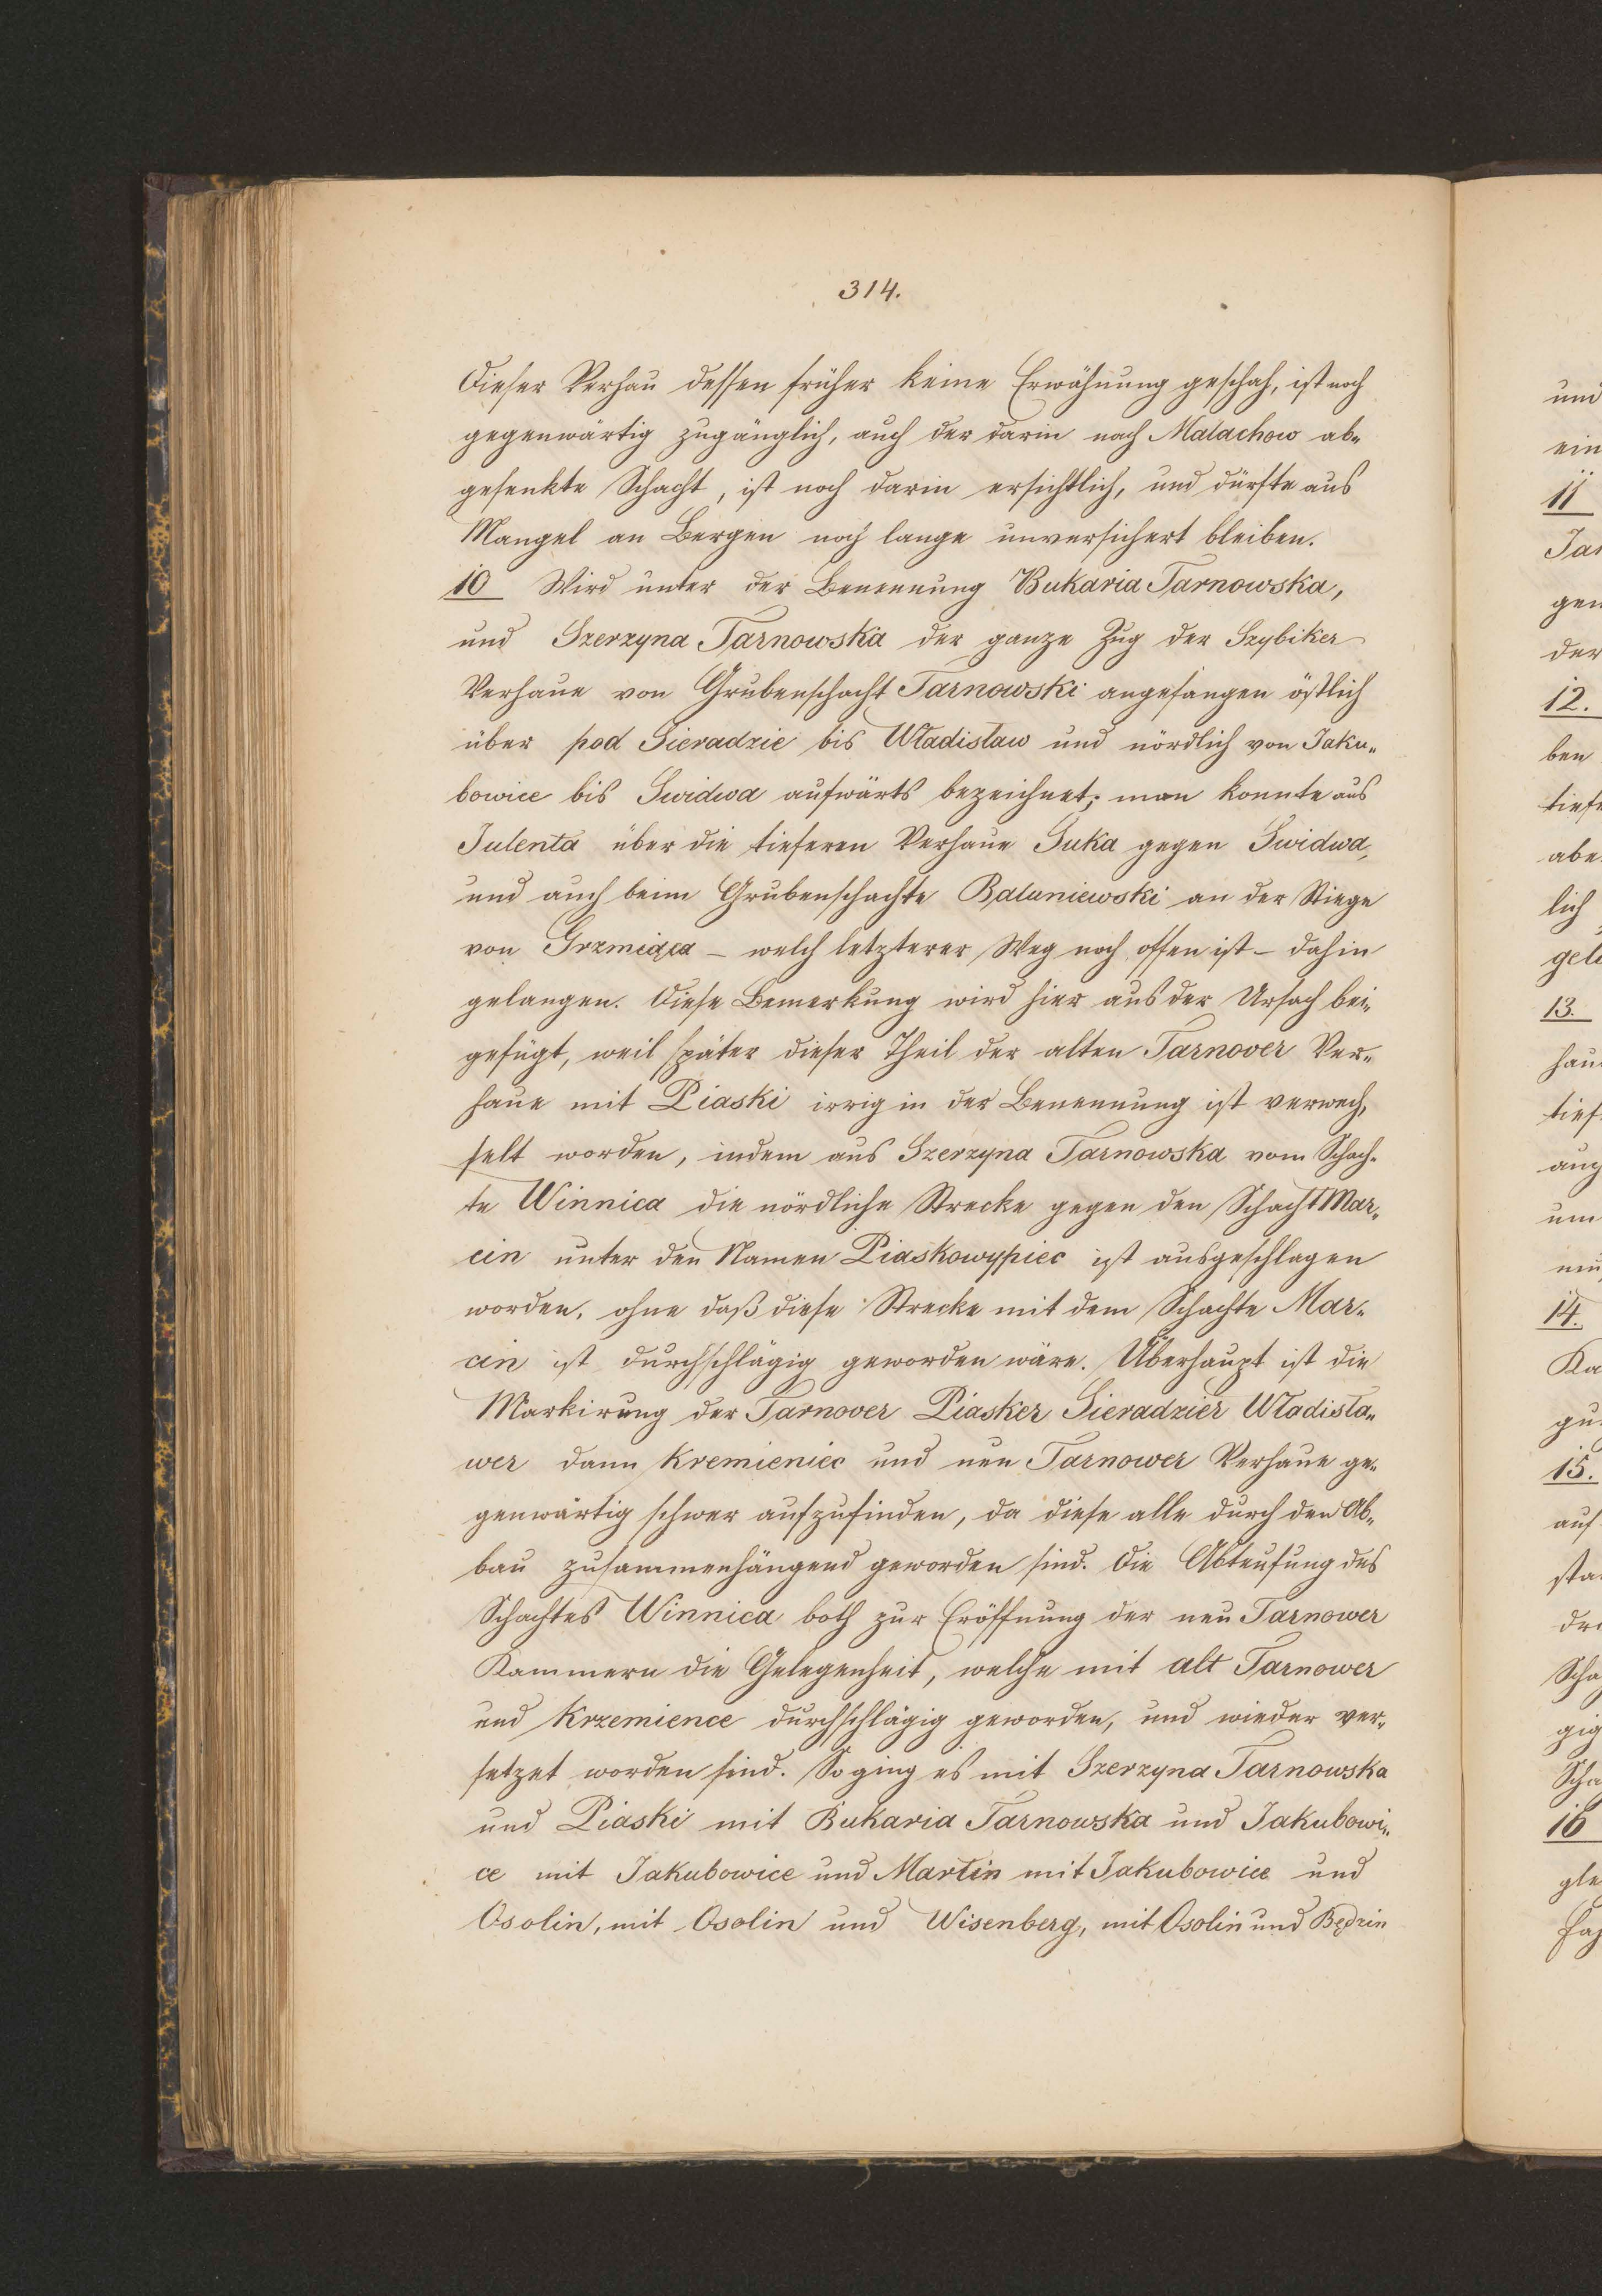 314.
Dieser Verhau dessen früher keine Erwähnung geschah, ist noch
gegenwärtig zugänglich, auch der darin nach Malachow ab„
gesenkte Schacht, ist noch darin ersichtlich, und dürfte aus
Mangel an Bergen noch lange unversichert bleiben.
10 Wird unter der Benennung Bukaria Tarnowska,
und Szerzyna Tarnowska der ganze Zug der Szybiker
Verhaue von Grubenschacht Tarnowski angefangen östlich
über pod Sieradzie bis Władisław und nördlich von Jaku„
bowice bis Swidwa aufwärts bezeichnet; man konnte aus
Julenta über die tieferen Verhaue Suka gegen Swidwa,
und auch beim Grubenschachte Baluniewski an der Stiege
von Grzmiąca – welch letzterer Weg noch offen ist – dahin
gelangen. Diese Bemerkung wird hier aus der Ursach bei„
gefügt, weil später dieser Theil der alten Tarnover Ver„
haue mit Piaski irrig in der Benennung ist verwech„
selt worden, indem aus Szerzyna Tarnowska vom Schach„
te Winnica die nördliche Strecke gegen den Schacht Mar„
cin unter den Namen Piaskowypiec ist ausgeschlagen
worden, ohne daß diese Strecke mit dem Schachte Mar„
cin ist durchschlägig geworden wäre. Überhaupt ist die
Markirung der Tarnover Piasker Sieradzier Władisła„
wer dann Kremieniec und neu Tarnower Verhaue ge„
genwärtig schwer aufzufinden, da diese alle durch den Ab„
bau zusammenhängend geworden sind. Die Abteufung des
Schachtes Winnica both zur Eröffnung der neu Tarnower
Kammern die Gelegenheit, welche mit alt Tarnower
und Krzemience durchschlägig geworden, und wieder ver„
setzet worden sind. So ging es mit Szerzyna Tarnowska
und Piaski mit Bukaria Tarnowska und Jakubowi„
ce mit Jakubowice und Martin mit Jakubowice und
Osolin, mit Osolin und Wisenberg, mit Osolin und Będzin
und
ein
11
Ja
gen
der
12.
ben
tief
abe
lich
gel
13.
hau
tief
aug
um
14.
Ka
gu
15.
auf
sta
Scha
gig
Scha
16
gle